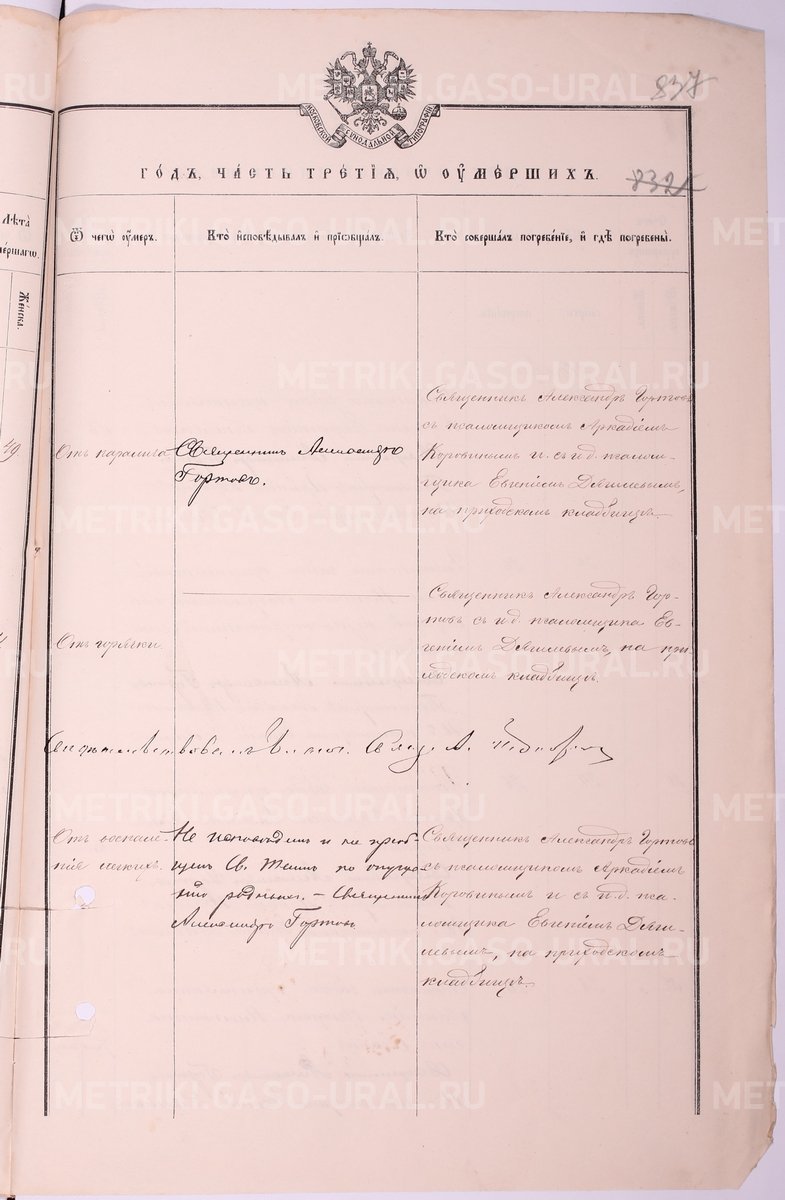 837
МОСКОВСКОЙ СѴНОДАЛЬНОЙ ТИПОГРАФІИ
832
ГО́ДЪ, ЧА́СТЬ ТРЕ́ТІѦ, Ѡ ОУМЕ́РШИХЪ.
Лѣ́та
ме́ршагѡ.
Же́нска.
Ѿ чегѡ̀ оу́меръ.
Кто̀ и҆сповѣ́дывалъ и҆ прїѡбща́лъ.
Кто̀ соверша́лъ погребе́нїе, и҆ гдѣ̀ погребены̀.
49
Отъ паралича
Священникъ Александръ
Гортовъ.
Священникъ Александръ Гортовъ
съ псаломщикомъ Аркадіемъ
Коровинымъ и съ и.д. псалом-
щика Евгеніемъ Дягилевымъ,
на приходскомъ кладбищѣ.
Отъ горячки.
Священникъ Александръ Гор-
товъ съ и.д. псаломщика Ев-
геніемъ Дягилевымъ, на при-
ходскомъ кладбищѣ.
Свидѣтельствовалъ Свящ. А.
Отъ воспале-
нія легкихъ.
Не исповѣданъ и не пріоб-
щенъ Св. Таинъ по опуще-
нію родныхъ. – Священникъ
Александръ Гортовъ
Священникъ Александръ Гортовъ
съ псаломщикомъ Аркадіемъ
Коровинымъ и съ и.д. пса-
ломщика Евгеніемъ Дяги-
левымъ, на приходскомъ
кладбищѣ.
METRIKI.GASO-URAL.RU